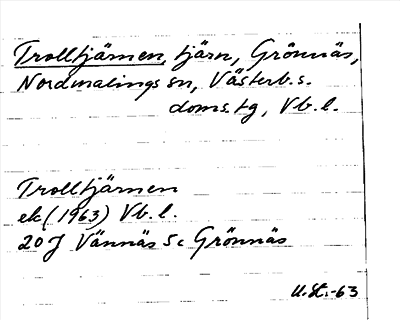 Trolltjärnen, tjärn, Grönnäs,
Nordmalings sn, Västerb. s.
doms. tg, Vb. l.
Trolltjärnen
ek (1963) Vb. l.
20 J Vännäs Sc Grönnäs
U. St. -63